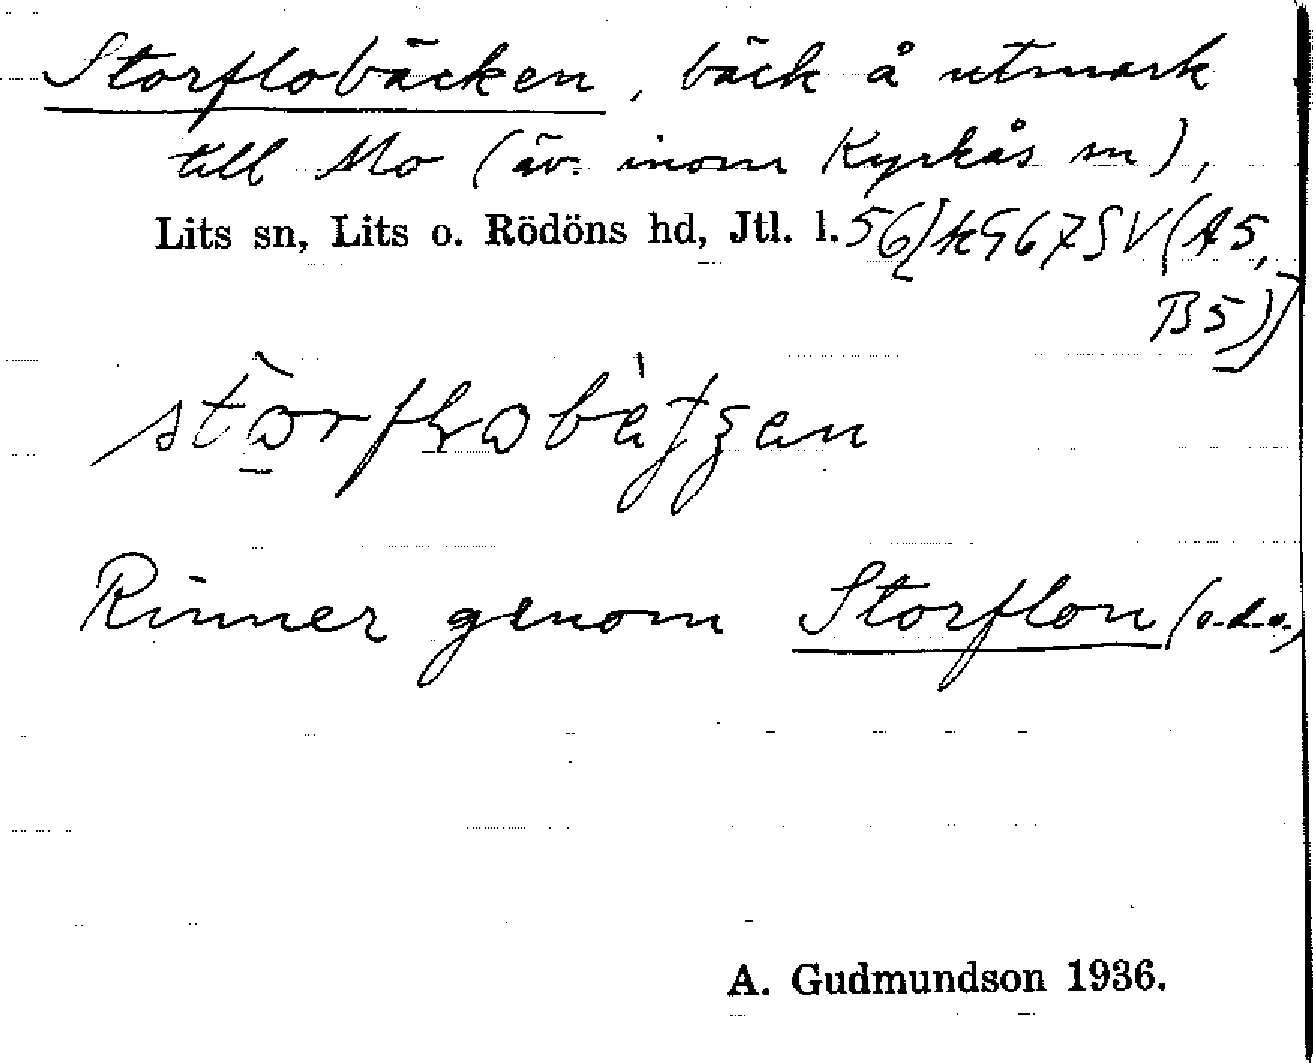 Storflobäcken, bäck å utmark
till Mo (äv. inom Kyrkås sn),
Lits sn, Lits o. Rödöns hd, Jtl. l.
B5)]
Rinner genom Storflon (s.d.o.)
A. Gudmundson 1936.